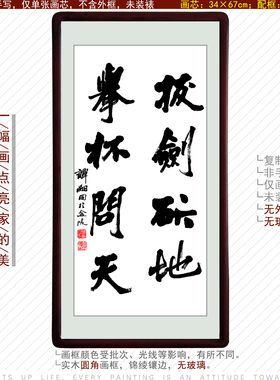 手写，仅单张画芯，不含外框，未装裱
画芯：34×67cm；配框：
拔劍斫地
舉杯問天
一幅画点亮家的美
复制
非手
仅
未装
无外
无玻
画框颜色受批次、光线等影响，有所不同。
实木圆角画框，锦绫镶边，无玻璃。
TS UP LIFE. EVERY PAINTING IS AN ATTITUDE TOWA